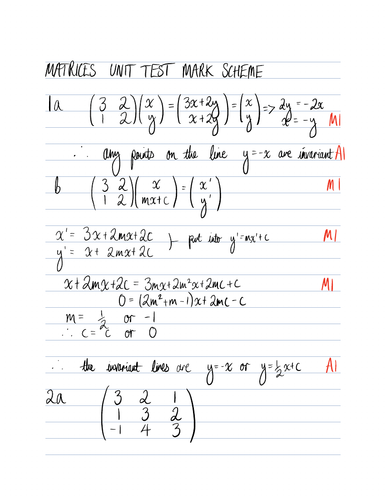 MATRICES UNIT TEST MARK SCHEME
1a (3 2 / 1 2)(x / y) = (3x+2y / x+2y) = (x / y) => 2y = -2x
x = -y M1
∴ any points on the line y=-x are invariant A1
b (3 2 / 1 2)(x / mx+c) = (x' / y') M1
x' = 3x+2mx+2c } put into y'=mx'+c M1
y' = x+ 2mx+2c
x+2mx+2c = 3mx+2m²x+2mc+c M1
0 = (2m²+m-1)x+2mc-c
m = 1/2 or -1
∴ c = c or 0
∴ the invariant lines are y=-x or y=1/2x+c A1
2a (3 2 1 / 1 3 2 / -1 4 3)